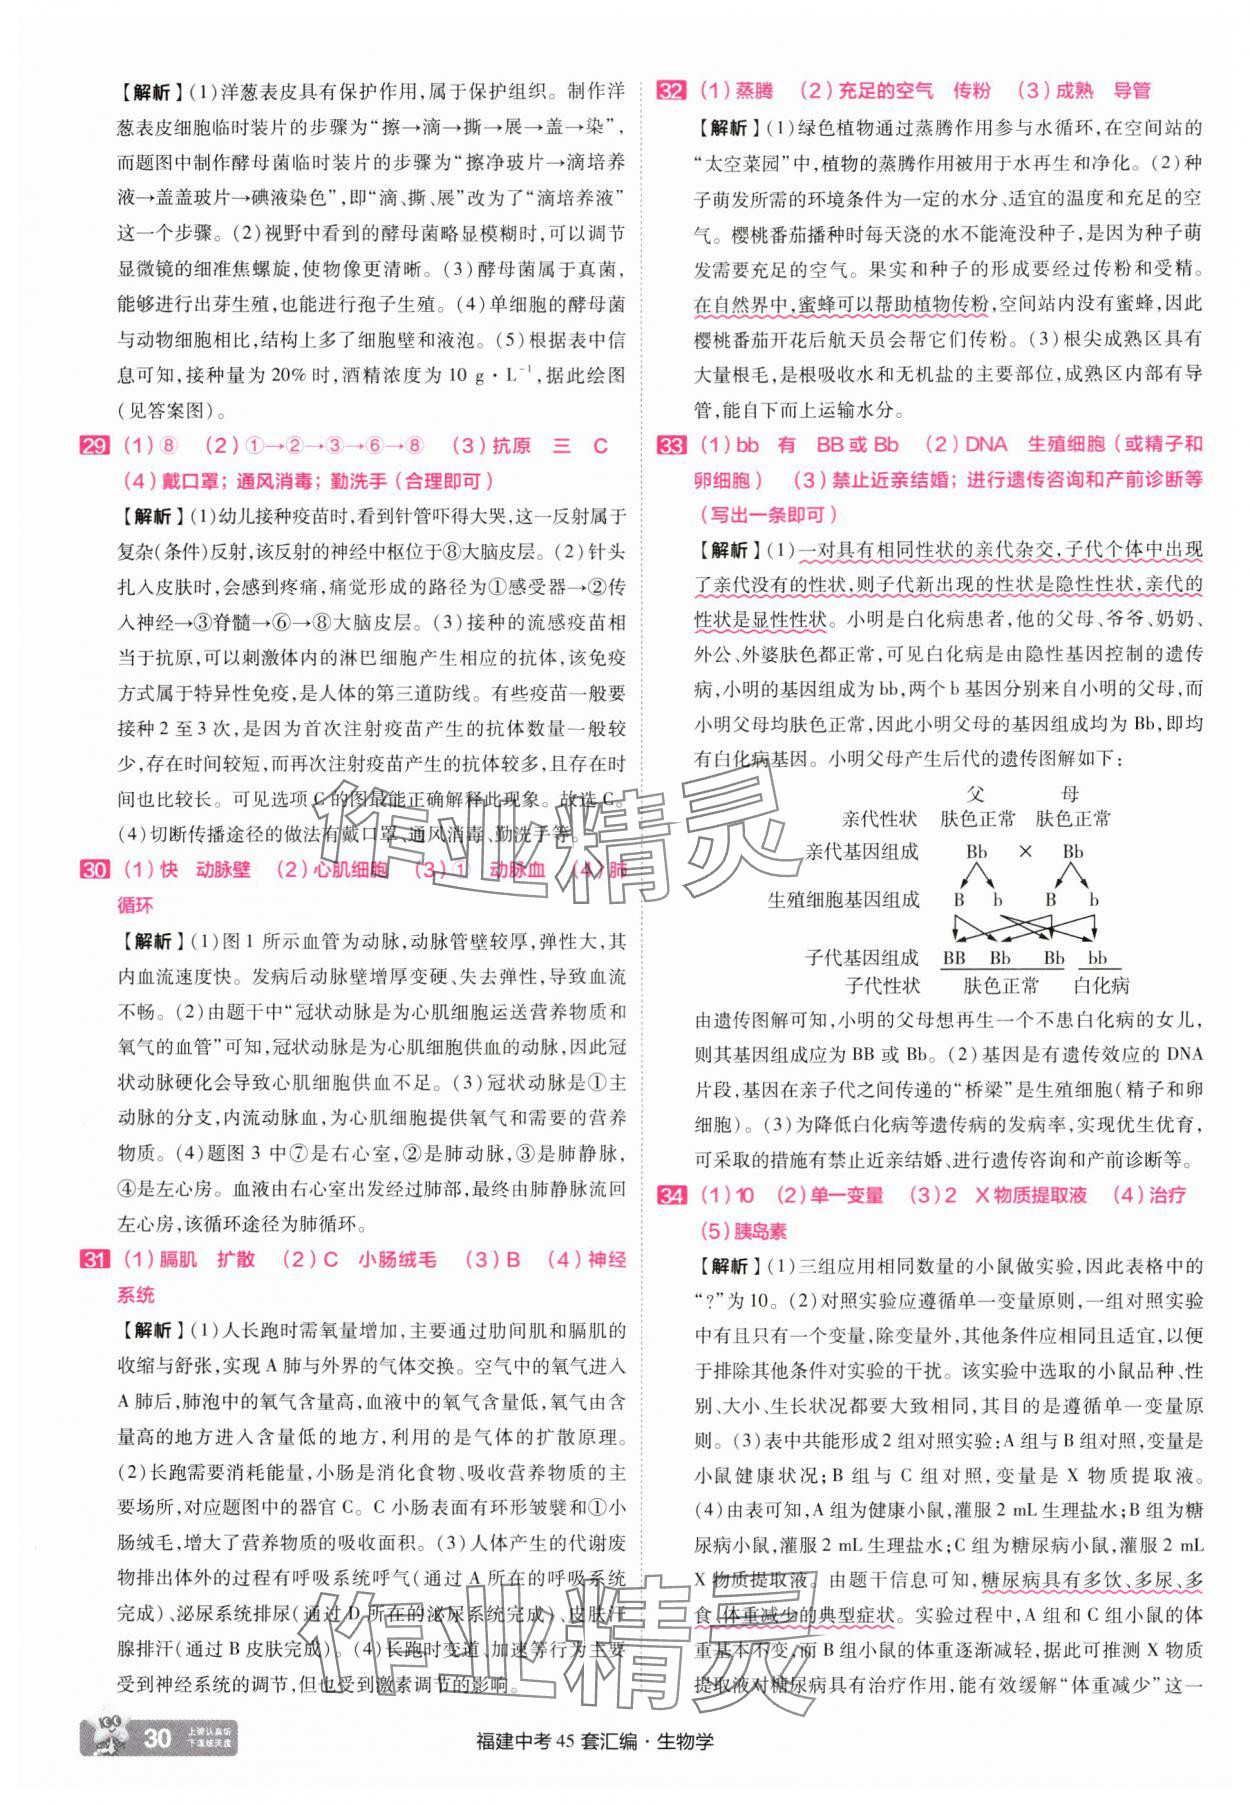 【解析】(1)洋葱表皮具有保护作用,属于保护组织。制作洋
葱表皮细胞临时装片的步骤为“擦→滴→撕→展→盖→染”,
而题图中制作酵母菌临时装片的步骤为“擦净玻片→滴培养
液→盖盖玻片→碘液染色”,即“滴、撕、展”改为了“滴培养液”
这一个步骤。(2)视野中看到的酵母菌略显模糊时,可以调节
显微镜的细准焦螺旋,使物像更清晰。(3)酵母菌属于真菌,
能够进行出芽生殖,也能进行孢子生殖。(4)单细胞的酵母菌
与动物细胞相比,结构上多了细胞壁和液泡。(5)根据表中信
息可知,接种量为20%时,酒精浓度为10 g·L⁻¹,据此绘图
(见答案图)。
29 (1)⑧ (2)①→②→③→⑥→⑧ (3)抗原 三 C
(4)戴口罩；通风消毒；勤洗手(合理即可)
【解析】(1)幼儿接种疫苗时,看到针管吓得大哭,这一反射属于
复杂(条件)反射,该反射的神经中枢位于⑧大脑皮层。(2)针头
扎入皮肤时,会感到疼痛,痛觉形成的路径为①感受器→②传
入神经→③脊髓→⑥→⑧大脑皮层。(3)接种的流感疫苗相
当于抗原,可以刺激体内的淋巴细胞产生相应的抗体,该免疫
方式属于特异性免疫,是人体的第三道防线。有些疫苗一般要
接种2至3次,是因为首次注射疫苗产生的抗体数量一般较
少,存在时间较短,而再次注射疫苗产生的抗体较多,且存在时
间也比较长。可见选项C的图最能正确解释此现象。故选C。
(4)切断传播途径的做法有戴口罩、通风消毒、勤洗手等。
30 (1)快 动脉壁 (2)心肌细胞 (3)① 动脉血 (4)肺
循环
【解析】(1)图1所示血管为动脉,动脉管壁较厚,弹性大,其
内血流速度快。发病后动脉壁增厚变硬、失去弹性,导致血流
不畅。(2)由题干中“冠状动脉是为心肌细胞运送营养物质和
氧气的血管”可知,冠状动脉是为心肌细胞供血的动脉,因此冠
状动脉硬化会导致心肌细胞供血不足。(3)冠状动脉是①主
动脉的分支,内流动脉血,为心肌细胞提供氧气和需要的营养
物质。(4)题图3中⑦是右心室,②是肺动脉,③是肺静脉,
④是左心房。血液由右心室出发经过肺部,最终由肺静脉流回
左心房,该循环途径为肺循环。
31 (1)膈肌 扩散 (2)C 小肠绒毛 (3)B (4)神经
系统
【解析】(1)人长跑时需氧量增加,主要通过肋间肌和膈肌的
收缩与舒张,实现A肺与外界的气体交换。空气中的氧气进入
A肺后,肺泡中的氧气含量高,血液中的氧气含量低,氧气由含
量高的地方进入含量低的地方,利用的是气体的扩散原理。
(2)长跑需要消耗能量,小肠是消化食物、吸收营养物质的主
要场所,对应题图中的器官C。C小肠表面有环形皱襞和①小
肠绒毛,增大了营养物质的吸收面积。(3)人体产生的代谢废
物排出体外的过程有呼吸系统呼气(通过A所在的呼吸系统
完成)、泌尿系统排尿(通过D所在的泌尿系统完成)、皮肤汗
腺排汗(通过B皮肤完成)。(4)长跑时变道、加速等行为主要
受到神经系统的调节,但也受到激素调节的影响。
32 (1)蒸腾 (2)充足的空气 传粉 (3)成熟 导管
【解析】(1)绿色植物通过蒸腾作用参与水循环,在空间站的
“太空菜园”中,植物的蒸腾作用被用于水再生和净化。(2)种
子萌发所需的环境条件为一定的水分、适宜的温度和充足的空
气。樱桃番茄播种时每天浇的水不能淹没种子,是因为种子萌
发需要充足的空气。果实和种子的形成要经过传粉和受精。
在自然界中,蜜蜂可以帮助植物传粉,空间站内没有蜜蜂,因此
樱桃番茄开花后航天员会帮它们传粉。(3)根尖成熟区具有
大量根毛,是根吸收水和无机盐的主要部位,成熟区内部有导
管,能自下而上运输水分。
33 (1)bb 有 BB或Bb (2)DNA 生殖细胞(或精子和
卵细胞) (3)禁止近亲结婚；进行遗传咨询和产前诊断等
(写出一条即可)
【解析】(1)一对具有相同性状的亲代杂交,子代个体中出现
了亲代没有的性状,则子代新出现的性状是隐性性状,亲代的
性状是显性性状。小明是白化病患者,他的父母、爷爷、奶奶、
外公、外婆肤色都正常,可见白化病是由隐性基因控制的遗传
病,小明的基因组成为bb,两个b基因分别来自小明的父母,而
小明父母均肤色正常,因此小明父母的基因组成均为Bb,即均
有白化病基因。小明父母产生后代的遗传图解如下:
父 母
亲代性状 肤色正常 肤色正常
亲代基因组成 Bb × Bb
生殖细胞基因组成 B b B b
子代基因组成 BB Bb Bb bb
子代性状 肤色正常 白化病
由遗传图解可知,小明的父母想再生一个不患白化病的女儿,
则其基因组成应为BB或Bb。(2)基因是有遗传效应的DNA
片段,基因在亲子代之间传递的“桥梁”是生殖细胞(精子和卵
细胞)。(3)为降低白化病等遗传病的发病率,实现优生优育,
可采取的措施有禁止近亲结婚、进行遗传咨询和产前诊断等。
34 (1)10 (2)单一变量 (3)2 X物质提取液 (4)治疗
(5)胰岛素
【解析】(1)三组应用相同数量的小鼠做实验,因此表格中的
“?”为10。(2)对照实验应遵循单一变量原则,一组对照实验
中有且只有一个变量,除变量外,其他条件应相同且适宜,以便
于排除其他条件对实验的干扰。该实验中选取的小鼠品种、性
别、大小、生长状况都要大致相同,其目的是遵循单一变量原
则。(3)表中共能形成2组对照实验:A组与B组对照,变量是
小鼠健康状况;B组与C组对照,变量是X物质提取液。
(4)由表可知,A组为健康小鼠,灌服2 mL生理盐水;B组为糖
尿病小鼠,灌服2 mL生理盐水;C组为糖尿病小鼠,灌服2 mL
X物质提取液。由题干信息可知,糖尿病具有多饮、多尿、多
食、体重减少的典型症状。实验过程中,A组和C组小鼠的体
重基本不变,而B组小鼠的体重逐渐减轻,据此可推测X物质
提取液对糖尿病具有治疗作用,能有效缓解“体重减少”这一
作业精灵
作业精灵
30 上课认真听
下课练天度
福建中考45套汇编·生物学